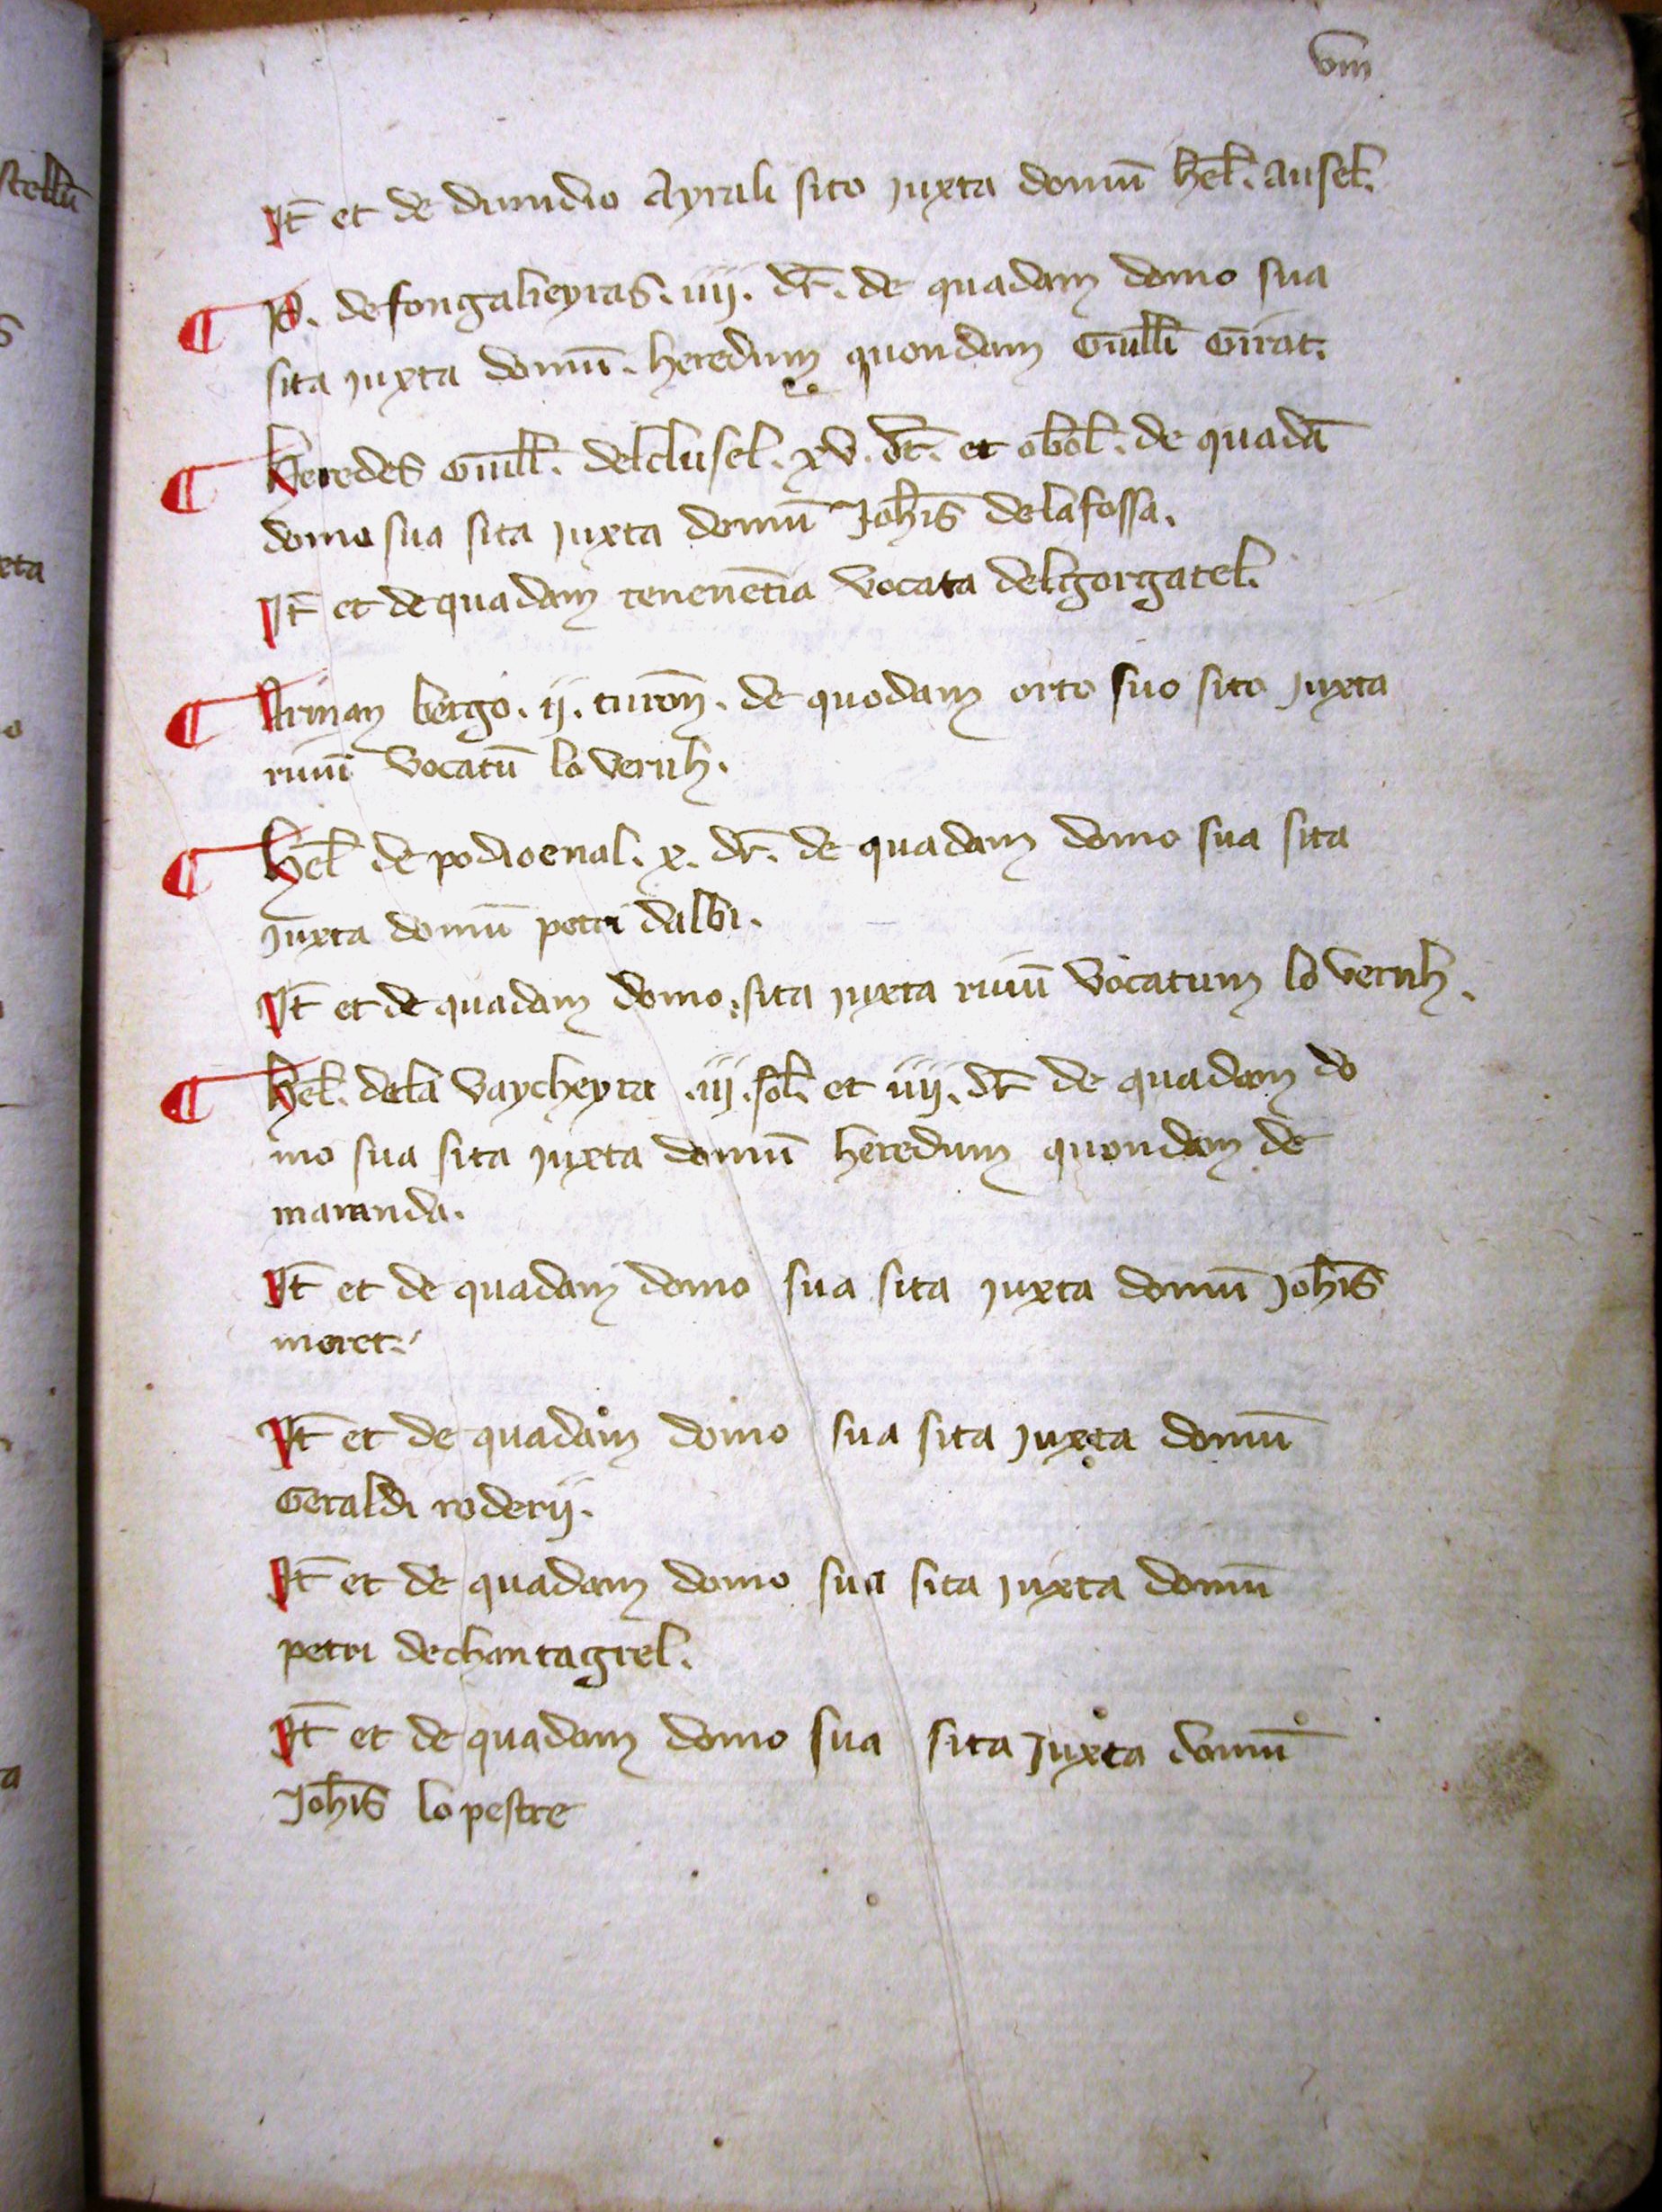 viii
It̄ et de dimidio Ayrali sito juxta domū hel̄. ausel̄.
¶ P. de fongalieyras. iiij. dr̄. de quadam domo sua
sita juxta domū. heredum quondam Guill̄i Girat.
¶ heredes Guill̄. delclusel. xv. dr̄. et obol̄. de quadā
domo sua sita juxta domū Joh̄is delafossa.
It̄ et de quadam tenenētia vocata delgorgatel.
¶ Arman bergo. ij. turon̄. de quodam orto suo sito juxta
rivū vocatū lo vernh.
¶ Hel̄ de podioenal. x. dr̄. de quadam domo sua sita
juxta domū petri dalbi.
It̄ et de quadam domo sita juxta rivū vocatum lo vernh.
¶ hel̄. dela vaycheyra .iij. sol̄. et iiij. dr̄ de quadam do
mo sua sita juxta domū heredum quondam de
maranda.
It̄ et de quadam domo sua sita juxta domū Joh̄is
moret.
It̄ et de quadam domo sua sita juxta domū
Geraldi roderij.
It̄ et de quadam domo sua sita juxta domū
petri dechantagrel.
It̄ et de quadam domo sua sita juxta domū
Joh̄is lo pestre
stellū
xta